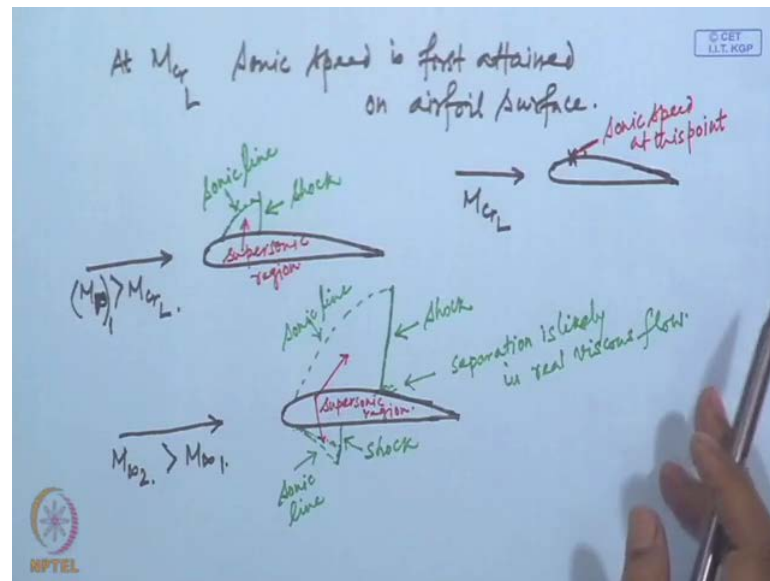 © CET
I.I.T. KGP
At M_cr_L sonic speed is first attained
on airfoil surface.
sonic speed
at this point
M_cr_L
sonic line
shock
supersonic
region
(M_∞)_1 > M_cr_L.
sonic line
shock
separation is likely
in real viscous flow.
supersonic
region.
M_∞2. > M_∞1.
shock
sonic
line
NPTEL